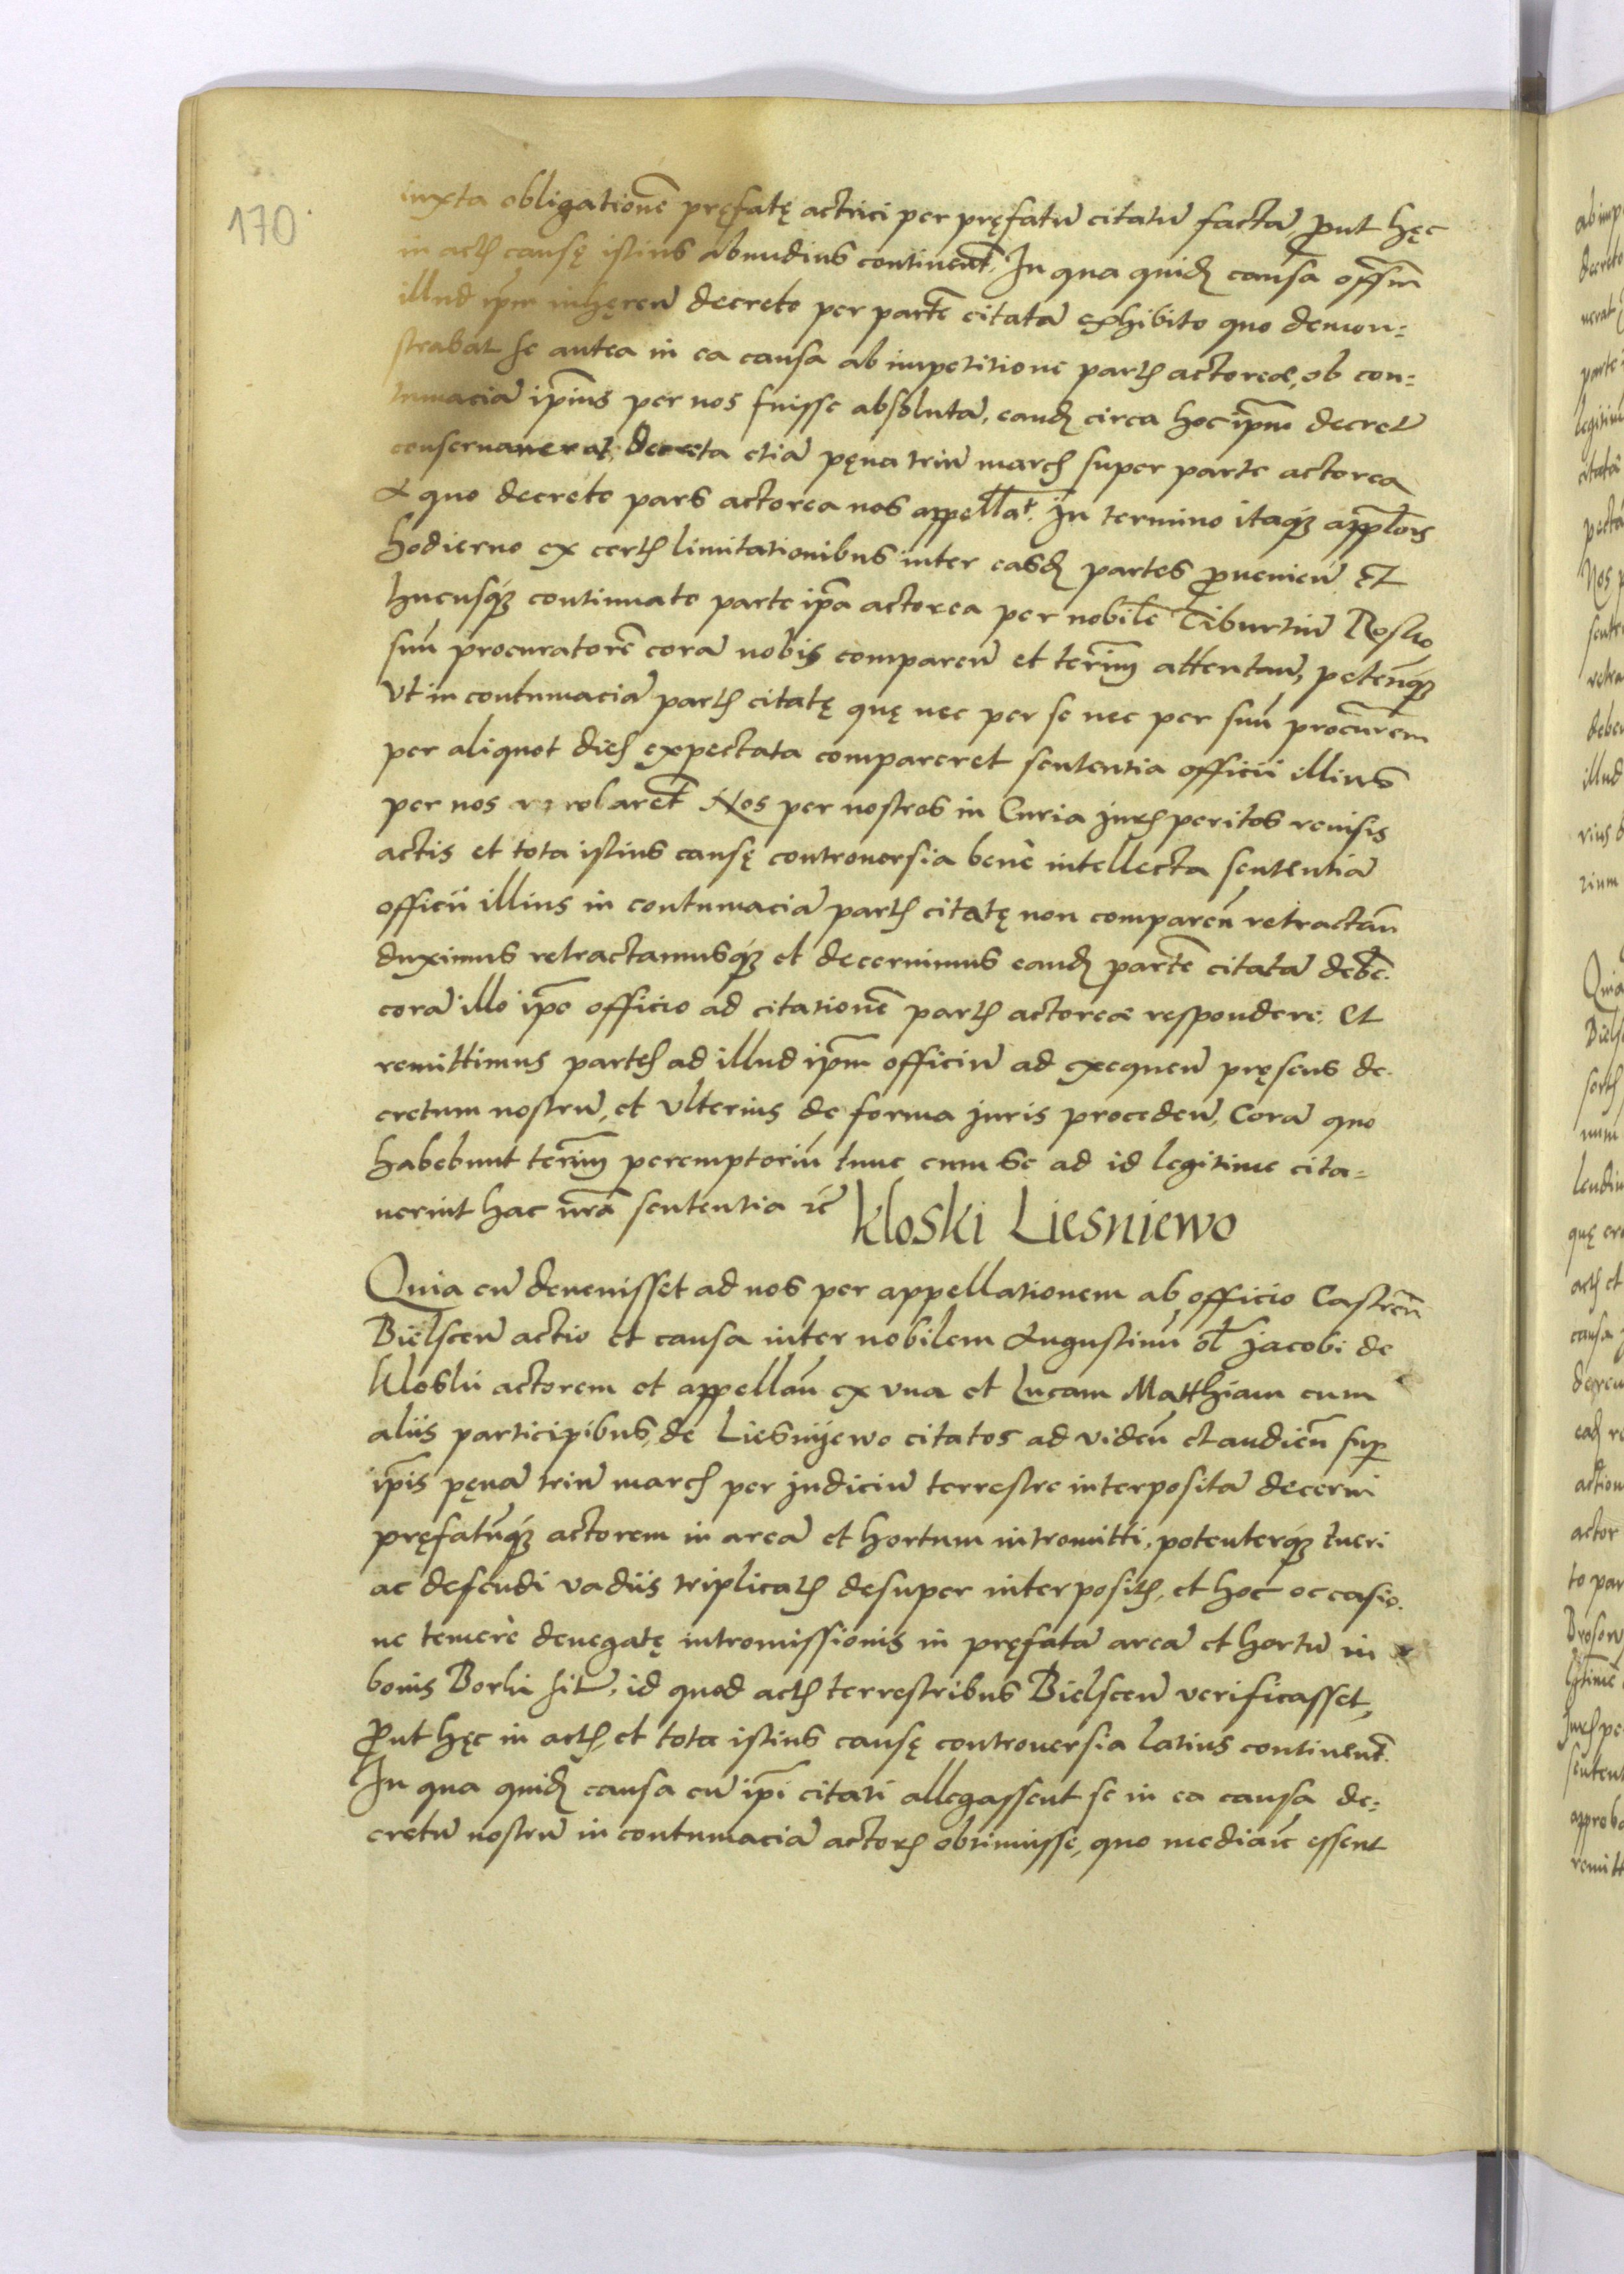 170
iuxta obligationē pręfatę actrici per pręfatū citatū factā, put hęc
in actꝭ causę istius abundius continent̃. In qua quidꝭ causa offm̃
illud ip̃m inhęreñ decreto per partē citatā exhibito quo demon=
strabat se antea in ea causa ab impetitione partꝭ actoreæ, ob con=
tumaciā ip̃ius per nos fuisse absolutā, eandꝭ circa hoc ip̃m decretū
conservaverat. Decreta etiā pęna triū marcꝭ super parte actorea
A quo decreto pars actorea nos appellat. In termino itaqȝ appl̃onis
hodierno ex certꝭ limitationibus inter easdꝭ partes ꝓvenieñ Et
hucusqȝ continuato parte ip̃a actorea per nobilē Tiburtiū
suū procuratorē corā nobis compareñ et term̃ attentañ, peteñqȝ
Vt in contumaciā partꝭ citatę quę nec per se nec per suū procur̃em
per aliquot dieꝭ expectata compareret sententia officii illius
per nos Nos per nostros in Curia jurꝭ peritos revisis
actis et tota istius causę controversia benè intellecta sententiā
officii illius in contumaciā partꝭ citatę non compareñ retractañ
duximus retractamusqȝ et decernimus eandꝭ partē citatā deb̃e.
corā illo ip̃o officio ad citationē partꝭ actoreæ respondere. Et
remittimus parteꝭ ad illud ip̃m officiū ad exequeñ pręsens de-
cretum nostrū, et vlterius de forma juris procedeñ, Corā quo
habebunt term̃ peremptoriū tunc cum se ad id legitime cita=
verint hac nr̃a sententia etc̃ Kloski Liesniewo
Quia cū devenisset ad nos per appellationem ab officio Castreñ
Bielsceñ actio et causa inter nobilem Augustinū ol̃ Jacobi de
Kloski actorem et appellañ ex vna et Lucam Matthiam cum
aliis participibus, de Liesnijewo citatos ad videñ et audieñ sup
ip̃is pęnā triū marcꝭ per judiciū terrestre interpositā decerni
pręfatūqȝ actorem in areā et hortum intromitti, potenterqȝ tueri
ac defendi vadiis triplicatꝭ desuper interpositꝭ, et hoc occasio-
ne temerè denegatę intromissionis in pręfatā areā et hortū in
bonis Borki sitū, id quod actꝭ terrestribus Bielsceñ verificasset,
ꝓut hęc in actꝭ, et tota istius causę controversia latius continent̃.
In qua quidꝭ causa cū ip̃i citati allegassent se in ea causa de=
cretū nostrū in contumaciā actorꝭ obtinuisse, quo mediañte essent